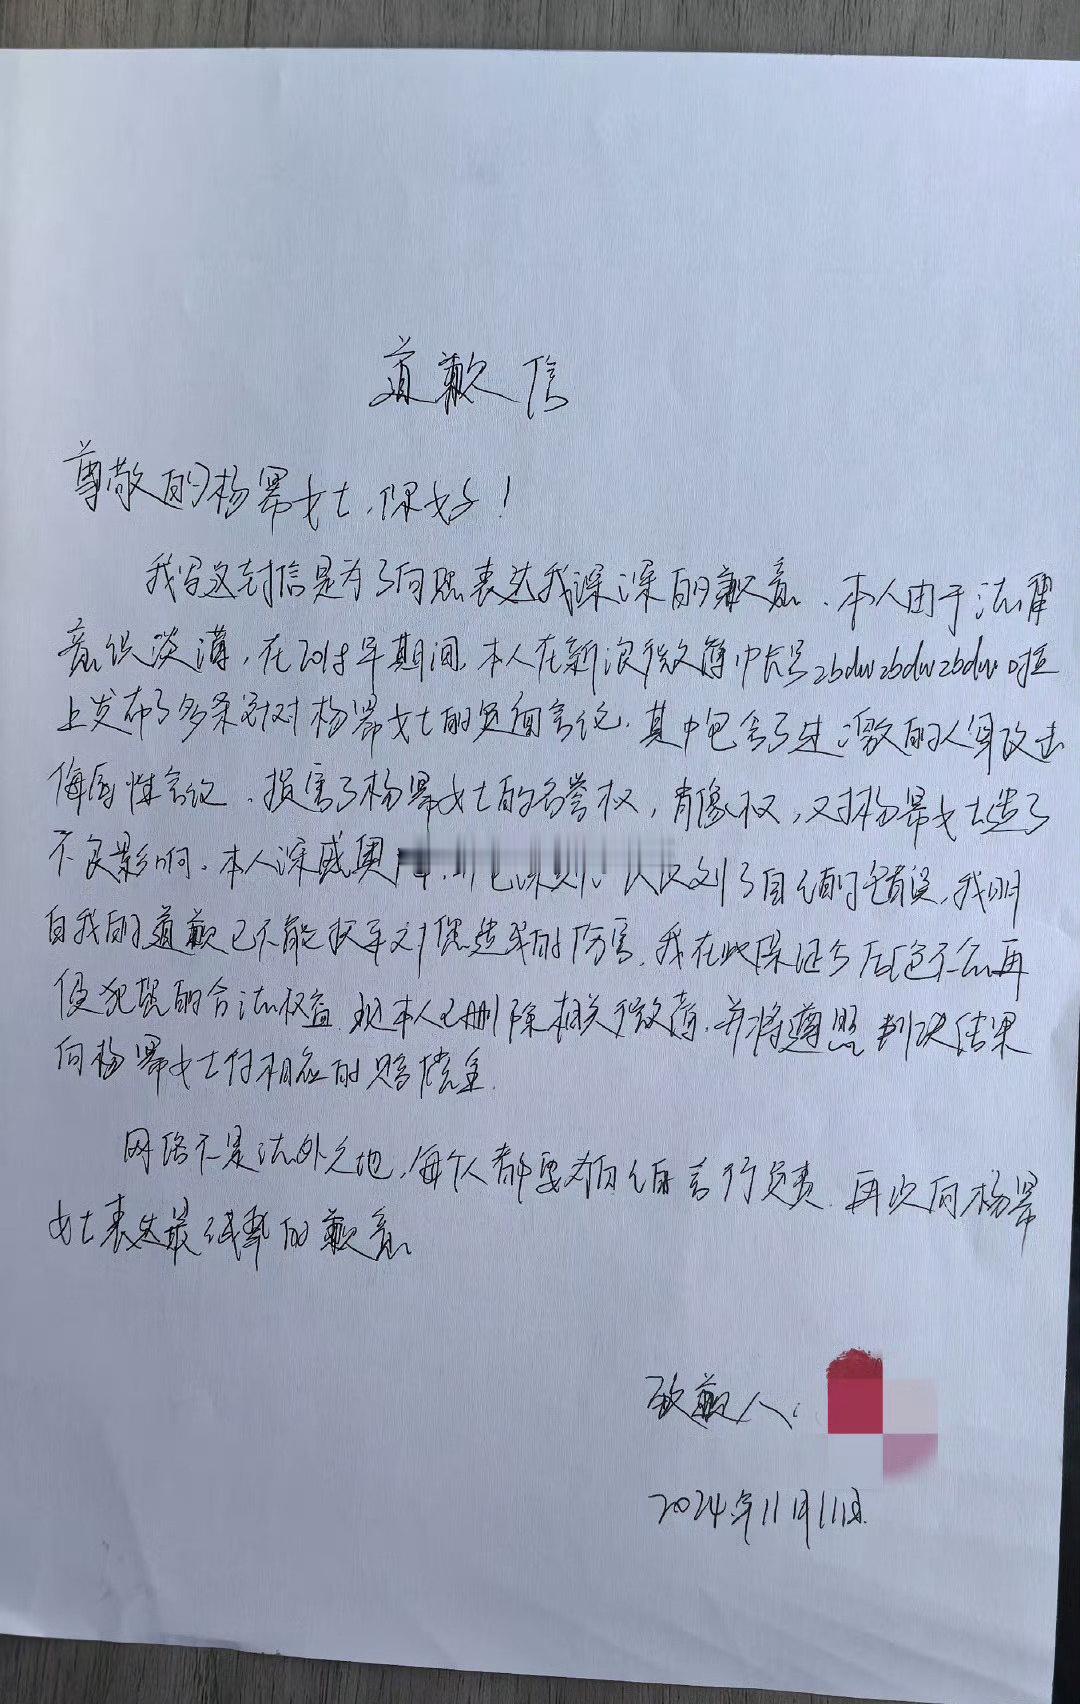 道歉信
尊敬的杨幂女士,你好!
我写这封信是为了向您表达我深深的歉意、本人由于法律
意识淡薄,在2018年期间,本人在新浪微博中账号zbdwzbdwzbdw
上发布了多条针对杨幂女士的负面言论.其中包含了过激的人身攻击
侮辱性言论、损害了杨幂女士的名誉权,肖像权,又对杨幂女士造了
不良影响.本人深感 认识到了自己的错误,我明
白我的道歉已不能扳平对您造成的伤害.我在此保证今后绝不会再
侵犯您的合法权益.现本人已删除相关微薄.并将遵照判决结果
向杨幂女士付相应的赔偿金.
网络不是法外之地,每个人都要为自己的言行负责.再次向杨幂
女士表达最诚挚的歉意
致歉人:
2024年11月11日